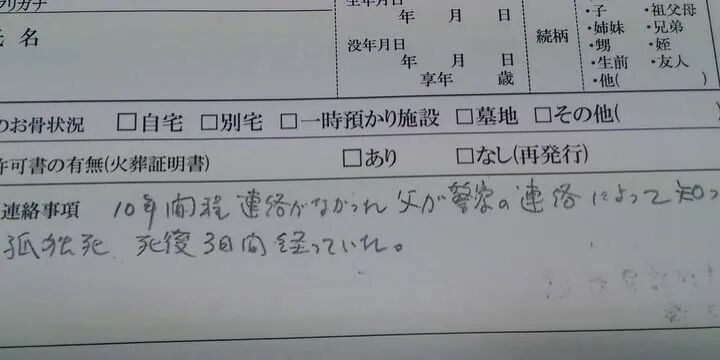 フリガナ
氏 名
生年月日
年 月 日
没年月日
年 月 日
享年 歳
続柄
・子 ・祖父母
・姉妹 ・兄弟
・甥 ・姪
・生前 ・友人
・他(
のお骨状況 □自宅 □別宅 □一時預かり施設 □墓地 □その他(
許可書の有無(火葬証明書) □あり □なし(再発行)
連絡事項 10年間程 連絡がなかった 父が警察の連絡によって知っ
孤独死 死後3日間経っていた。